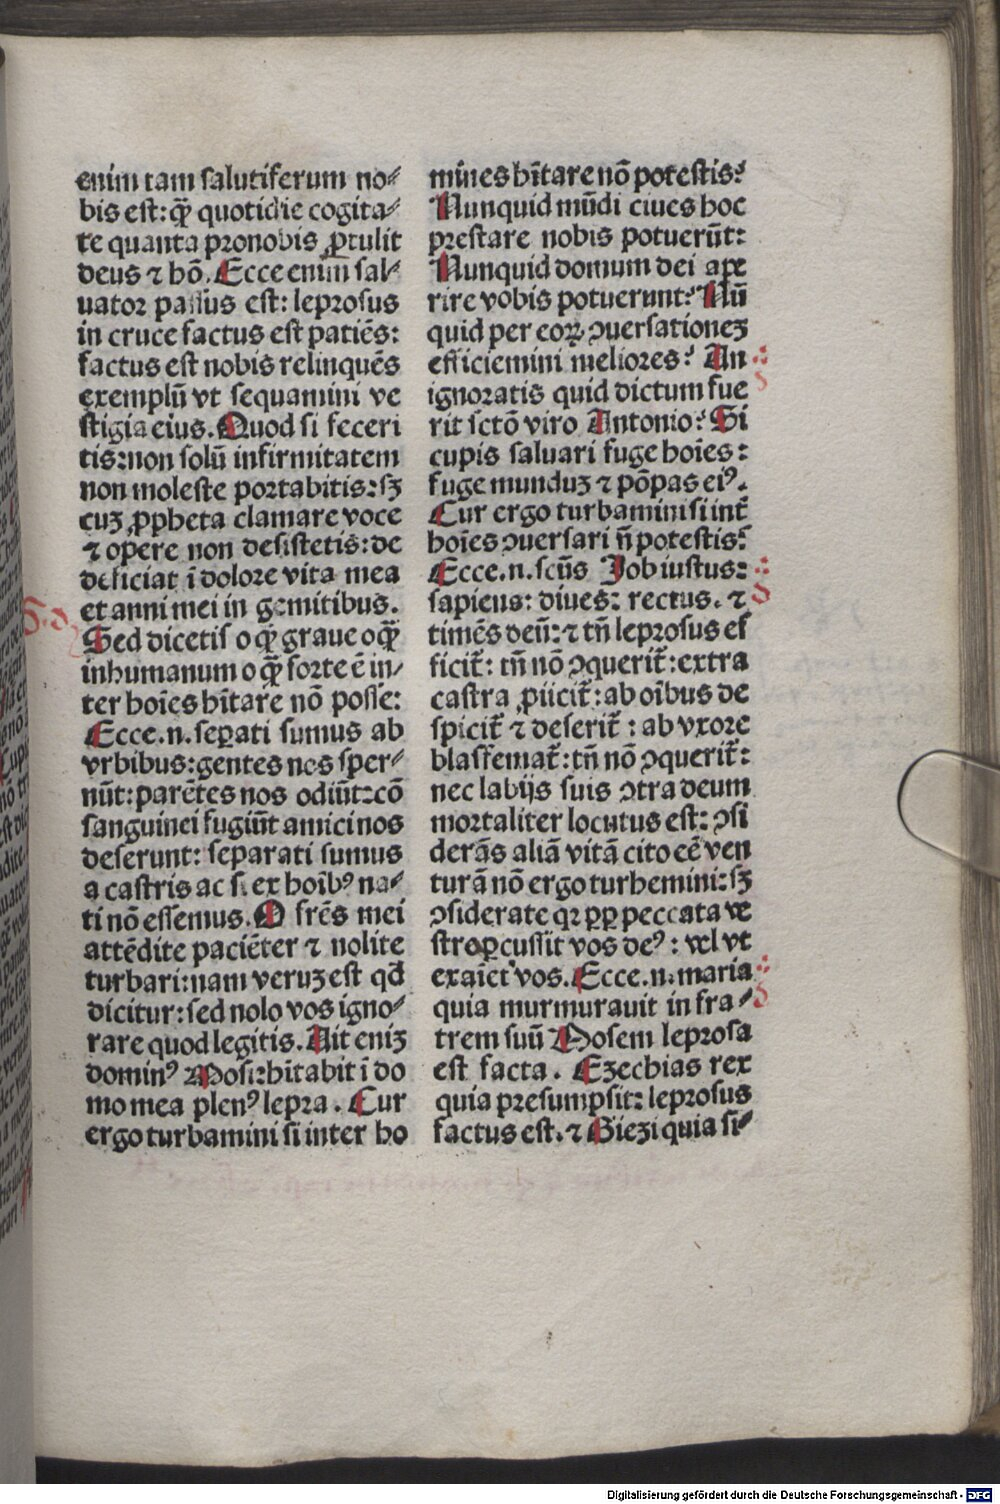 enim tam salutiferum no⸗
bis est: qꝫ̄ quotidie cogita⸗
te quanta pronobis ꝓtulit
deus ⁊ hō. Ecce enim sal⸗
uator passus est: leprosus
in cruce factus est patiēs:
factus est nobis relinquēs
exemplū vt sequamini ve
stigia eius. Quod si feceri
tis: non solū infirmitatem
non moleste portabitis: sꝫ
cuꝫ ꝓpheta clamare voce
⁊ opere non desistetis: de
deficiat ī dolore vita mea
et anni mei in gemitibus.
Sed dicetis o qꝫ̄ graue o qꝫ̄
inhumanum o qꝫ̄ forte ē in⸗
ter hoīes hītare nō posse:
Ecce .n. seꝑati sumus ab
vrbibus: gentes nos sper⸗
nūt: parētes nos odiūt: cō
sanguinei fugiūt amici nos
deserunt: separati sumus
a castris ac si ex hoībꝰ na⸗
ti nō essemus. O frēs mei
attēdite paciēter ⁊ nolite
turbari: nam veruꝫ est qđ
dicitur: sed nolo vos igno⸗
rare quod legitis. Ait eniꝫ
dominꝰ Mosi: hītabit ī do
mo mea plenꝰ lepra. Cur
ergo turbamini si inter ho
mines hītare nō potestis?
Nunquid mūdi ciues hoc
prestare nobis potuerūt:
Nunquid domum dei ape
rire vobis potuerunt? Nū
quid per eoꝝ ꝯuersationeꝫ
efficiemini meliores? An
ignoratis quid dictum fue
rit sctō viro Antonio? Si
cupis saluari fuge hoīes:
fuge munduꝫ ⁊ pōpas eiꝰ.
Cur ergo turbamini si int̄
hoīes ꝯuersari n̄ potestis?
Ecce .n. scūs Job iustus:
sapiens: diues: rectus. ⁊
timēs deū: ⁊ tn̄ leprosus ef
ficit̄: tn̄ nō ꝯquerit̄: extra
castra ꝓiicit̄: ab oībus de
spicit̄ ⁊ deserit̄: ab vxore
blasfemat̄: tn̄ nō ꝯquerit̄:
nec labijs suis ꝯtra deum
mortaliter locutus est: ꝯsi
derās aliā vitā cito eē ven
turā nō ergo turbemini: sꝫ
ꝯsiderate qꝛ ꝓꝑ peccata ve
stra ꝑcussit vos deꝰ: vel vt
exaīet vos. Ecce .n. maria
quia murmurauit in fra⸗
trem suū Mosem leprosa
est facta. Ezechias rex
quia presumpsit: leprosus
factus est. ⁊ Giezi quia si⸗
Digitalisierung gefördert durch die Deutsche Forschungsgemeinschaft - DFG